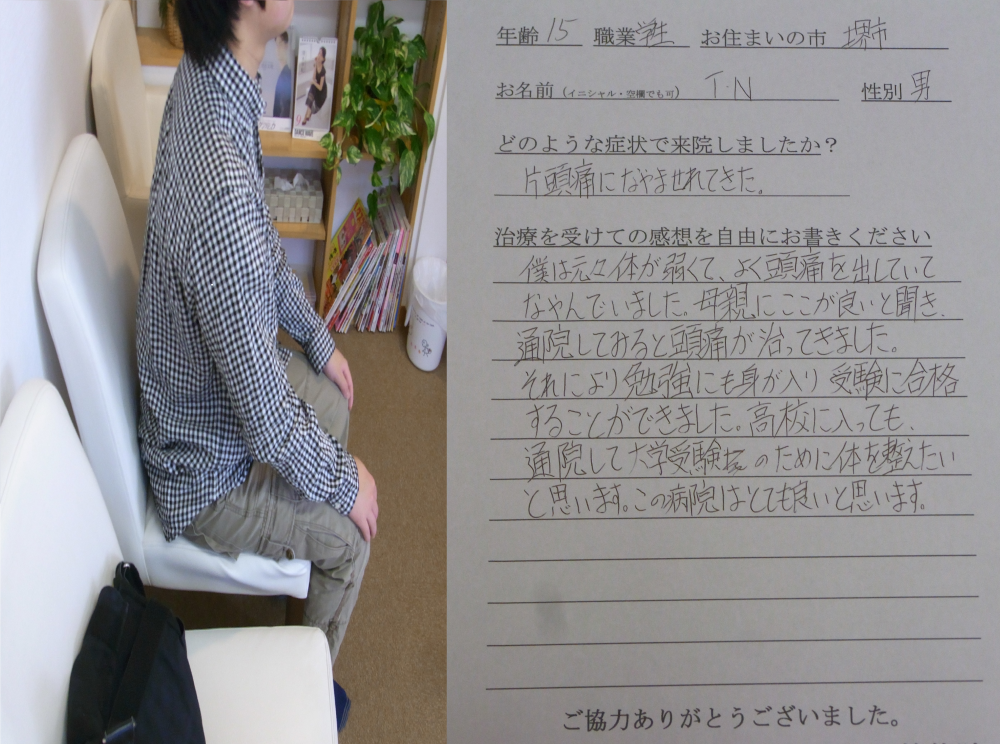 年齢 15 職業 学生 お住まいの市 堺市
お名前（イニシャル・空欄でも可） T・N 性別 男
どのような症状で来院しましたか？
片頭痛になやませれてきた。
治療を受けての感想を自由にお書きください
僕は元々体が弱くて、よく頭痛を出していて
なやんでいました。母親にここが良いと聞き、
通院してみると頭痛が治ってきました。
それにより勉強にも身が入り受験に合格
することができました。高校に入っても、
通院して大学受験のために体を整えたい
と思います。この病院はとても良いと思います。
ご協力ありがとうございました。